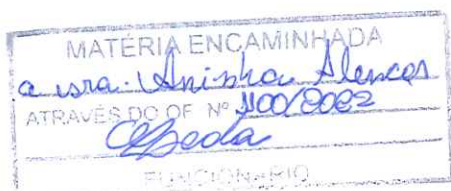 MATÉRIA ENCAMINHADA
a sra. Aninha Alencar
ATRAVÉS DO OF. Nº 1100/2022
FUNCIONÁRIO